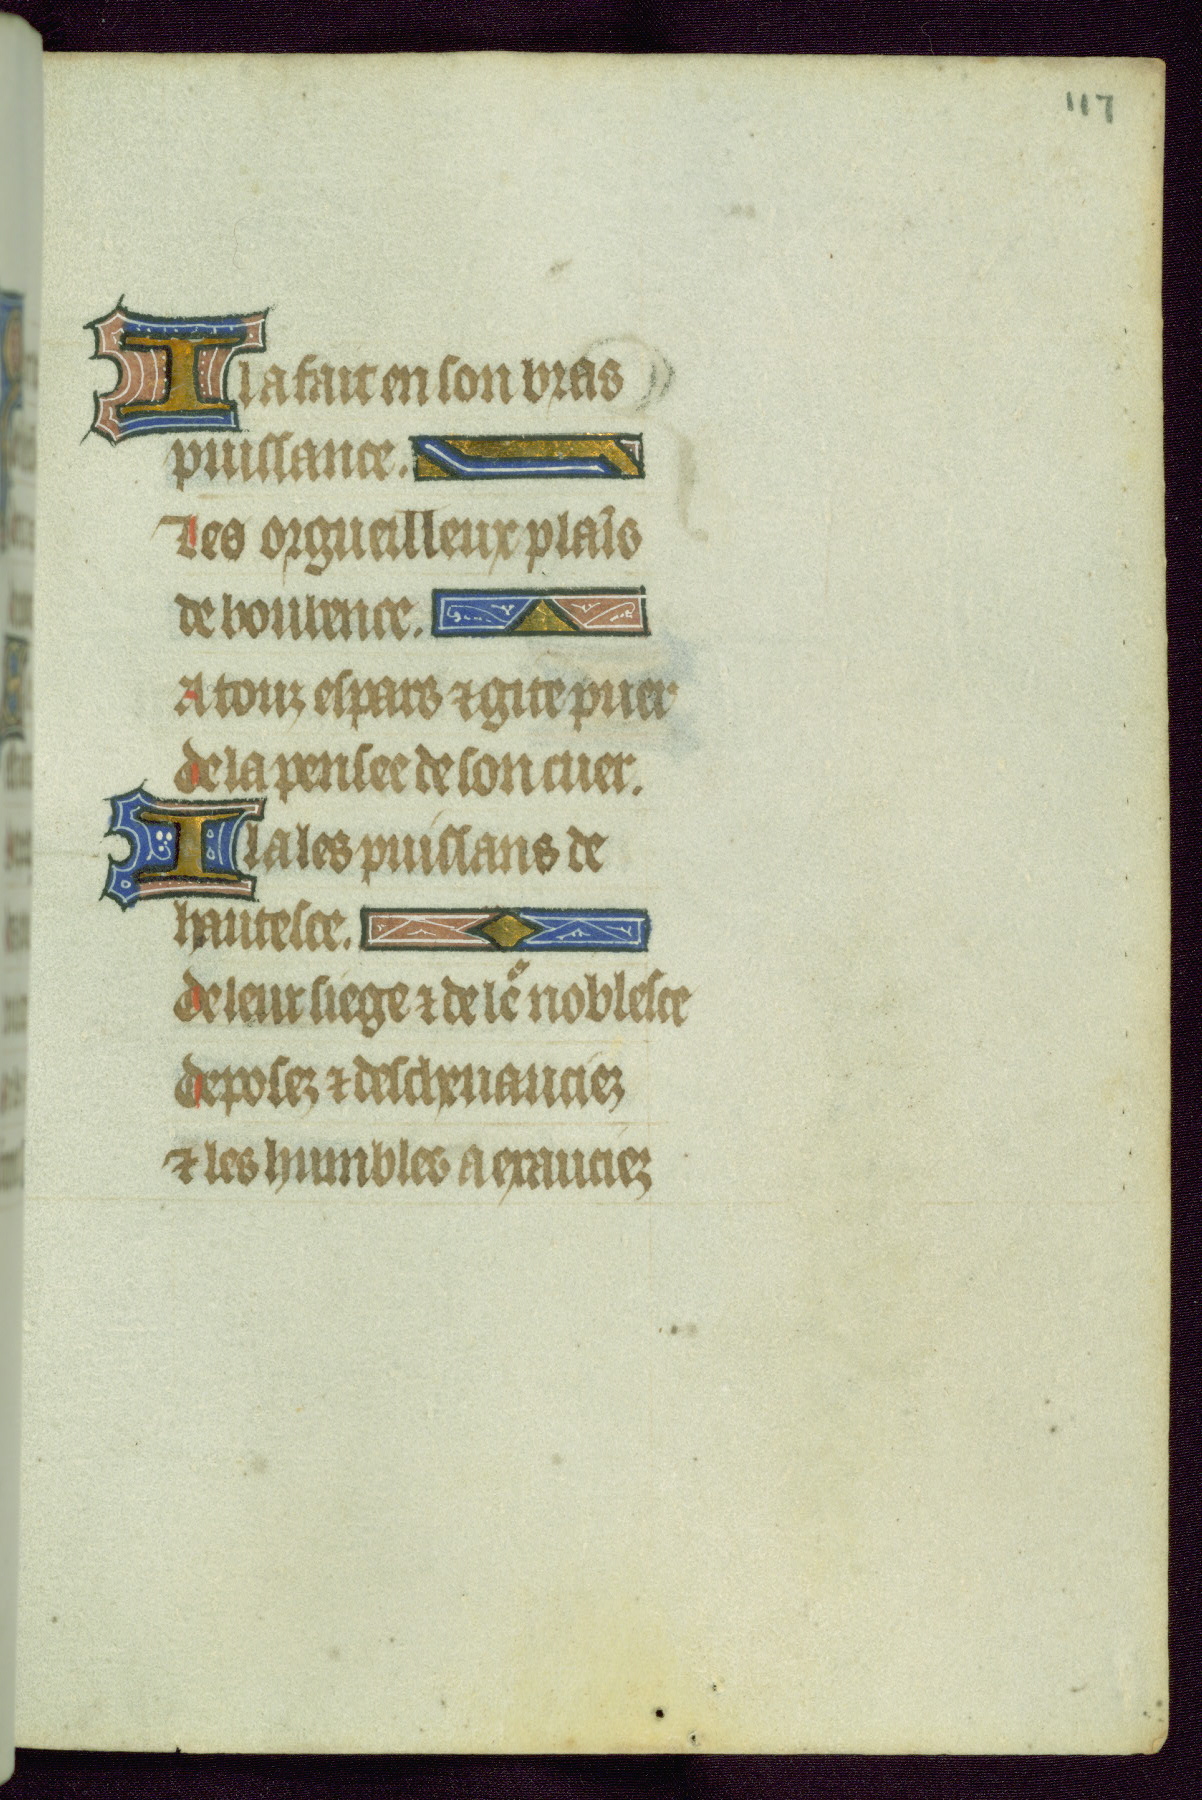 117
Il a fait en son bras
puissance.
Les orgueilleux plaīs
de boulence.
A touz espars ⁊ gite puer
de la pensee de son cuer.
Il a les puissans de
hautesce.
de leur siege ⁊ de leͬ noblesce
deposez ⁊ deschevauciez
⁊ les humbles a exauciez